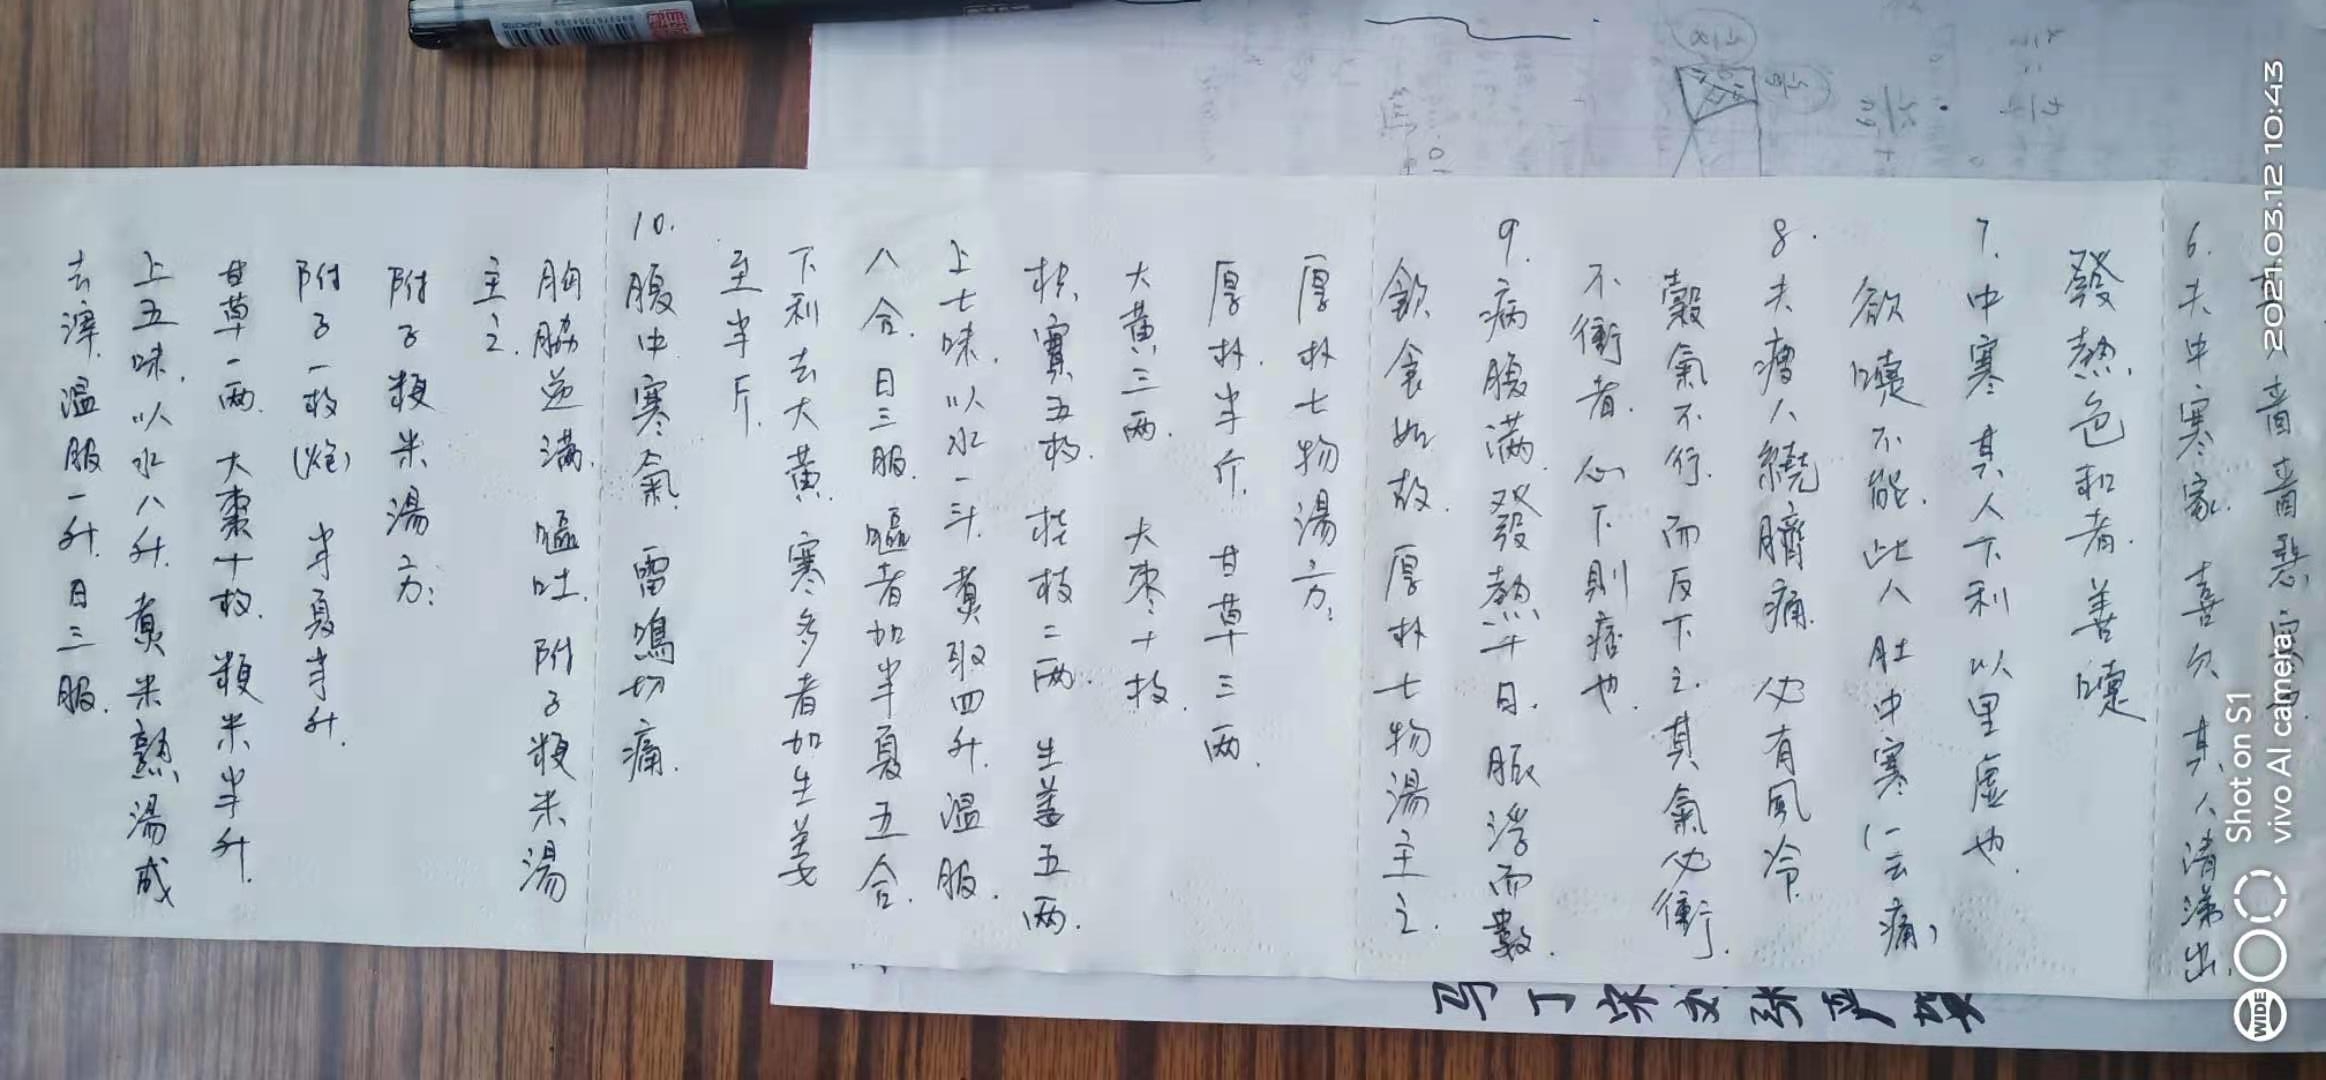 嗇嗇惡寒
6.夫中寒家.喜欠.其人清涕出.
發熱.色和者.善嚏
7.中寒.其人下利.以里虛也.
欲嚏不能.此人肚中寒(一云痛)
8.夫瘦人繞臍痛.必有風冷.
穀氣不行.而反下之.其氣必衝.
不衝者.心下則痞也.
9.病腹滿.發熱十日.脈浮而數.
飲食如故.厚朴七物湯主之.
厚朴七物湯方:
厚朴半斤.甘草三两.
大黃三两.大枣十枚.
枳實五枚.桂枝二两.生姜五两.
上七味.以水一斗.煮取四升.温服
八合.日三服.嘔者加半夏五合.
下利去大黃.寒多者加生姜
至半斤.
10.腹中寒氣.雷鳴切痛.
胸脇逆滿.嘔吐.附子粳米湯
主之.
附子粳米湯方:
附子一枚(炮) 半夏半升.
甘草一两.大棗十枚.粳米半升.
上五味.以水八升.煮米熟.湯成
去滓.温服一升.日三服.
2021.03.12 10:43
Shot on S1
vivo AI camera
WIDE